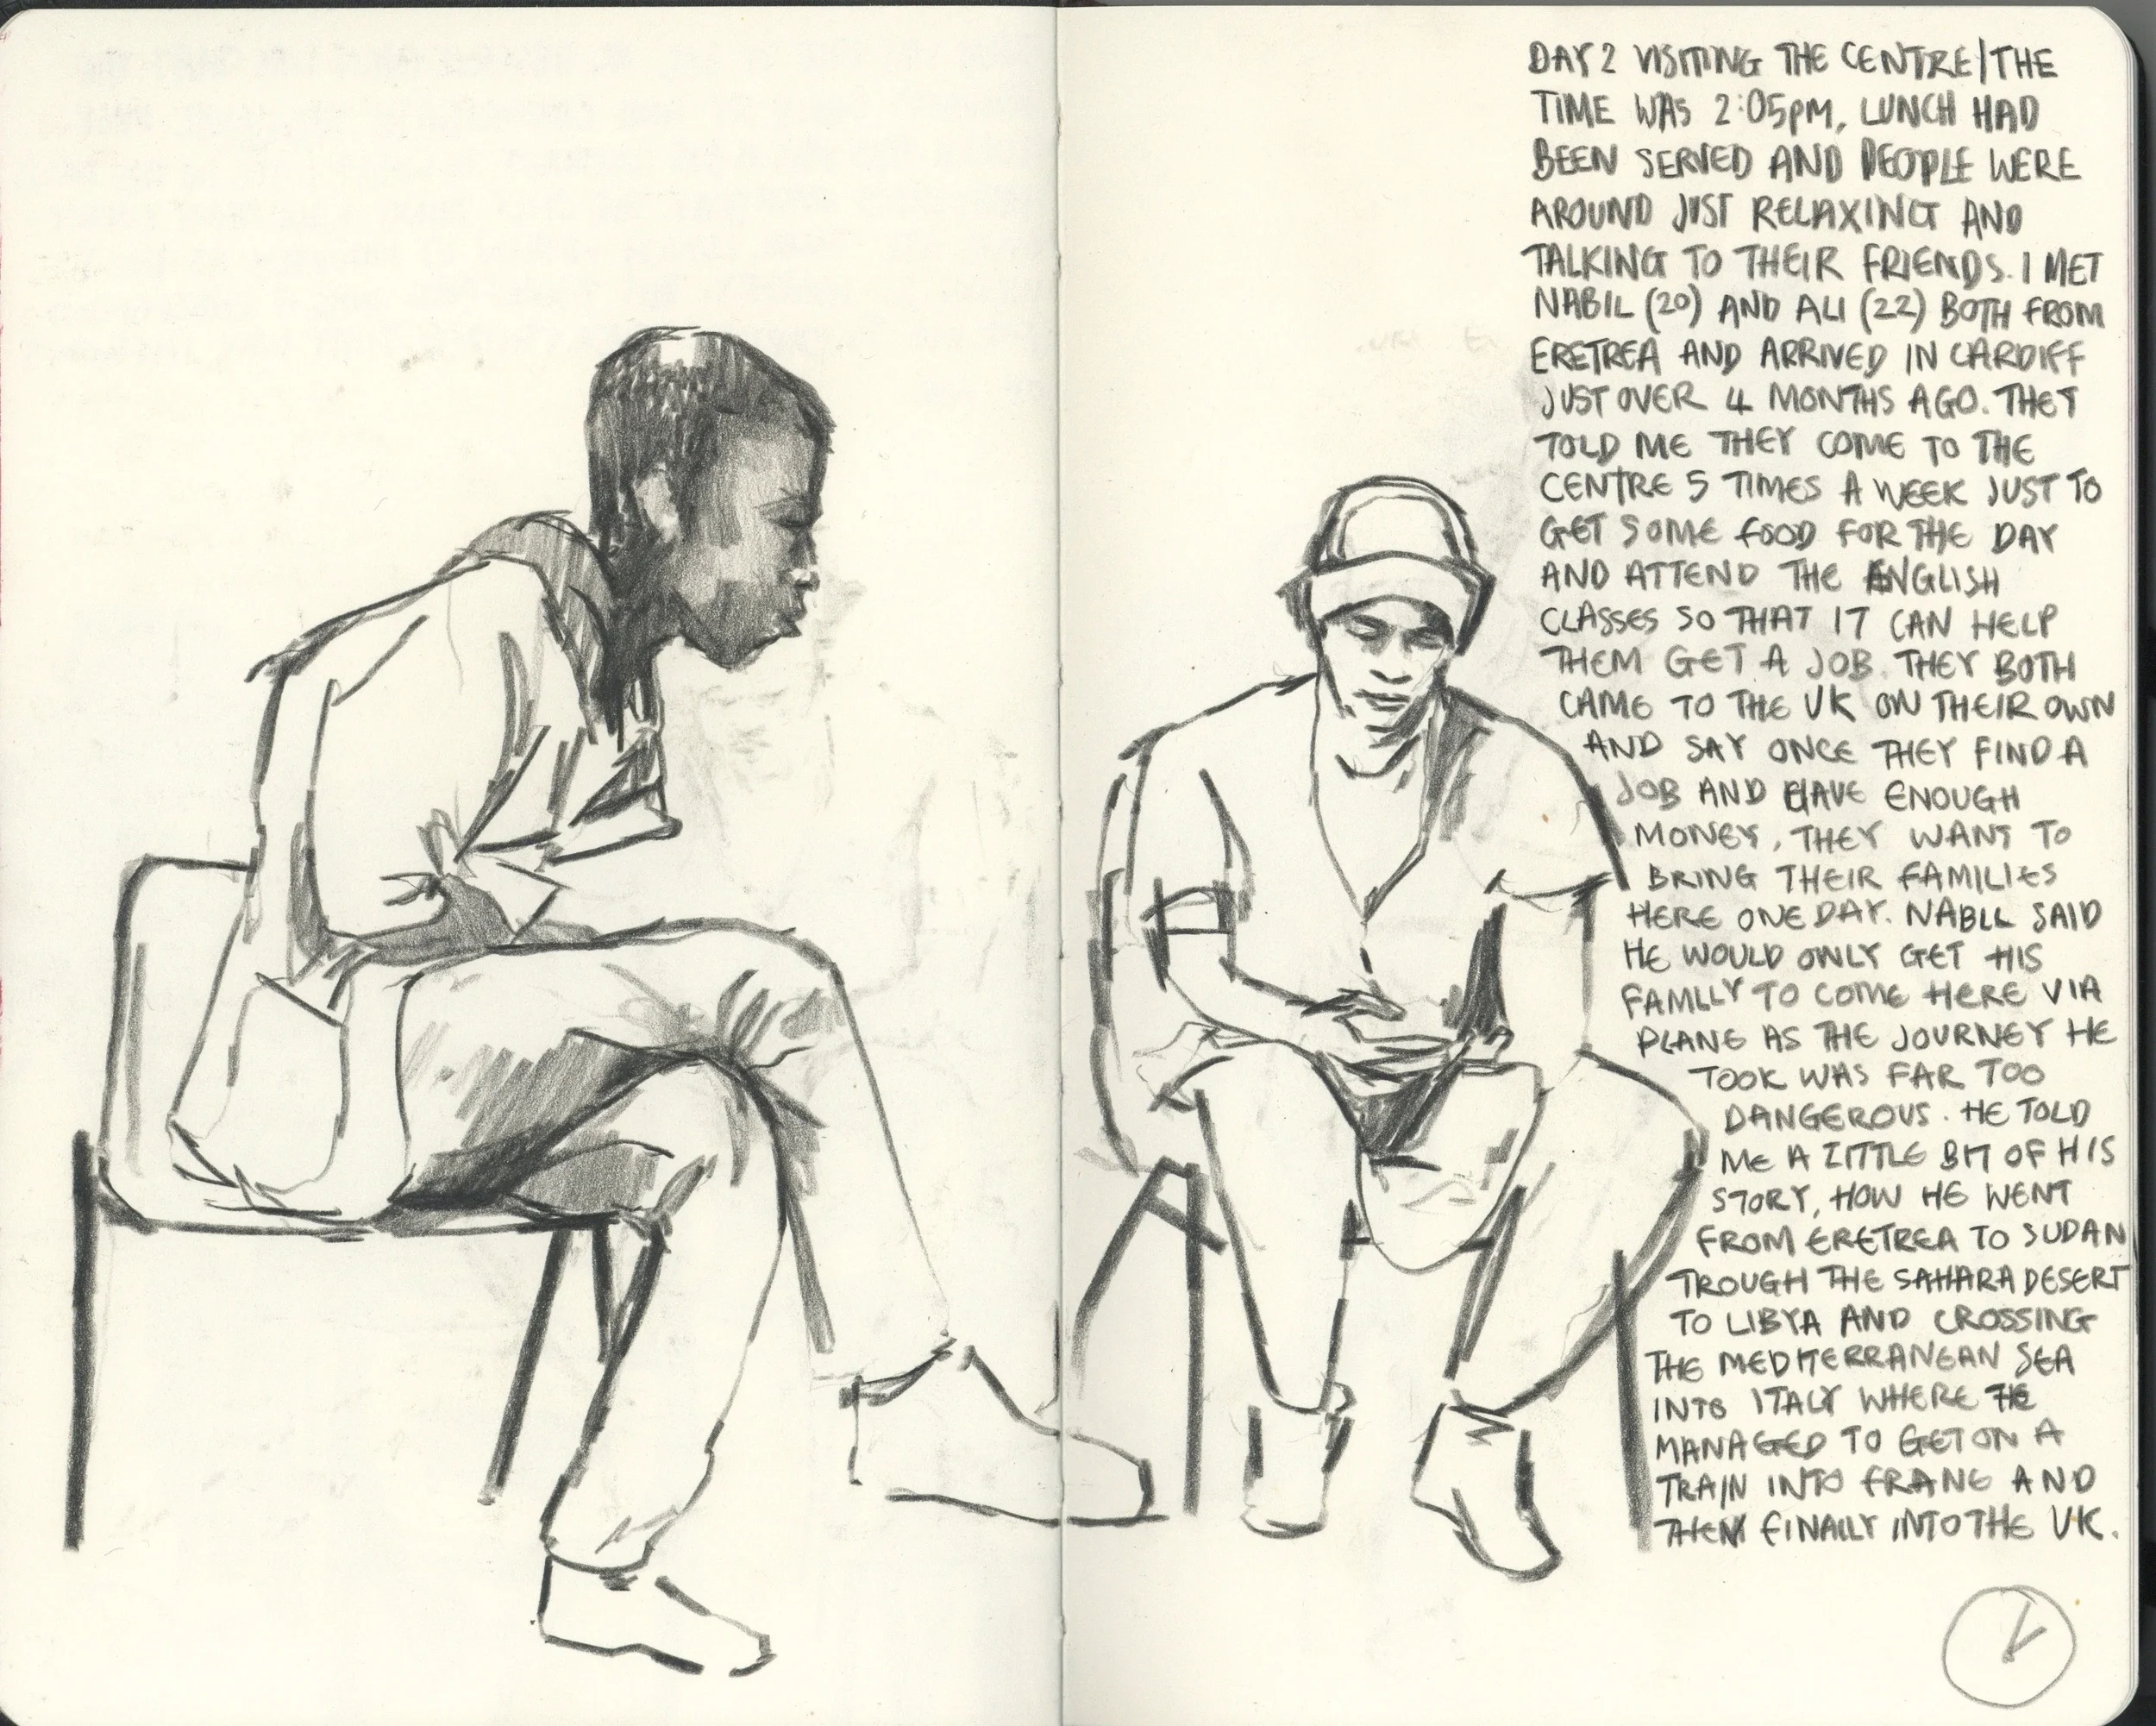 DAY 2 VISITING THE CENTRE/THE
TIME WAS 2:05PM, LUNCH HAD
BEEN SERVED AND PEOPLE WERE
AROUND JUST RELAXING AND
TALKING TO THEIR FRIENDS. I MET
NABIL (20) AND ALI (22) BOTH FROM
ERETREA AND ARRIVED IN CARDIFF
JUST OVER 4 MONTHS AGO. THEY
TOLD ME THEY COME TO THE
CENTRE 5 TIMES A WEEK JUST TO
GET SOME FOOD FOR THE DAY
AND ATTEND THE ENGLISH
CLASSES SO THAT IT CAN HELP
THEM GET A JOB. THEY BOTH
CAME TO THE UK ON THEIR OWN
AND SAY ONCE THEY FIND A
JOB AND HAVE ENOUGH
MONEY, THEY WANT TO
BRING THEIR FAMILIES
HERE ONE DAY. NABIL SAID
HE WOULD ONLY GET HIS
FAMILY TO COME HERE VIA
PLANE AS THE JOURNEY HE
TOOK WAS FAR TOO
DANGEROUS. HE TOLD
ME A LITTLE BIT OF HIS
STORY, HOW HE WENT
FROM ERETREA TO SUDAN
TROUGH THE SAHARA DESERT
TO LIBYA AND CROSSING
THE MEDITERRANEAN SEA
INTO ITALY WHERE HE
MANAGED TO GET ON A
TRAIN INTO FRANCE AND
THEN FINALLY INTO THE UK.